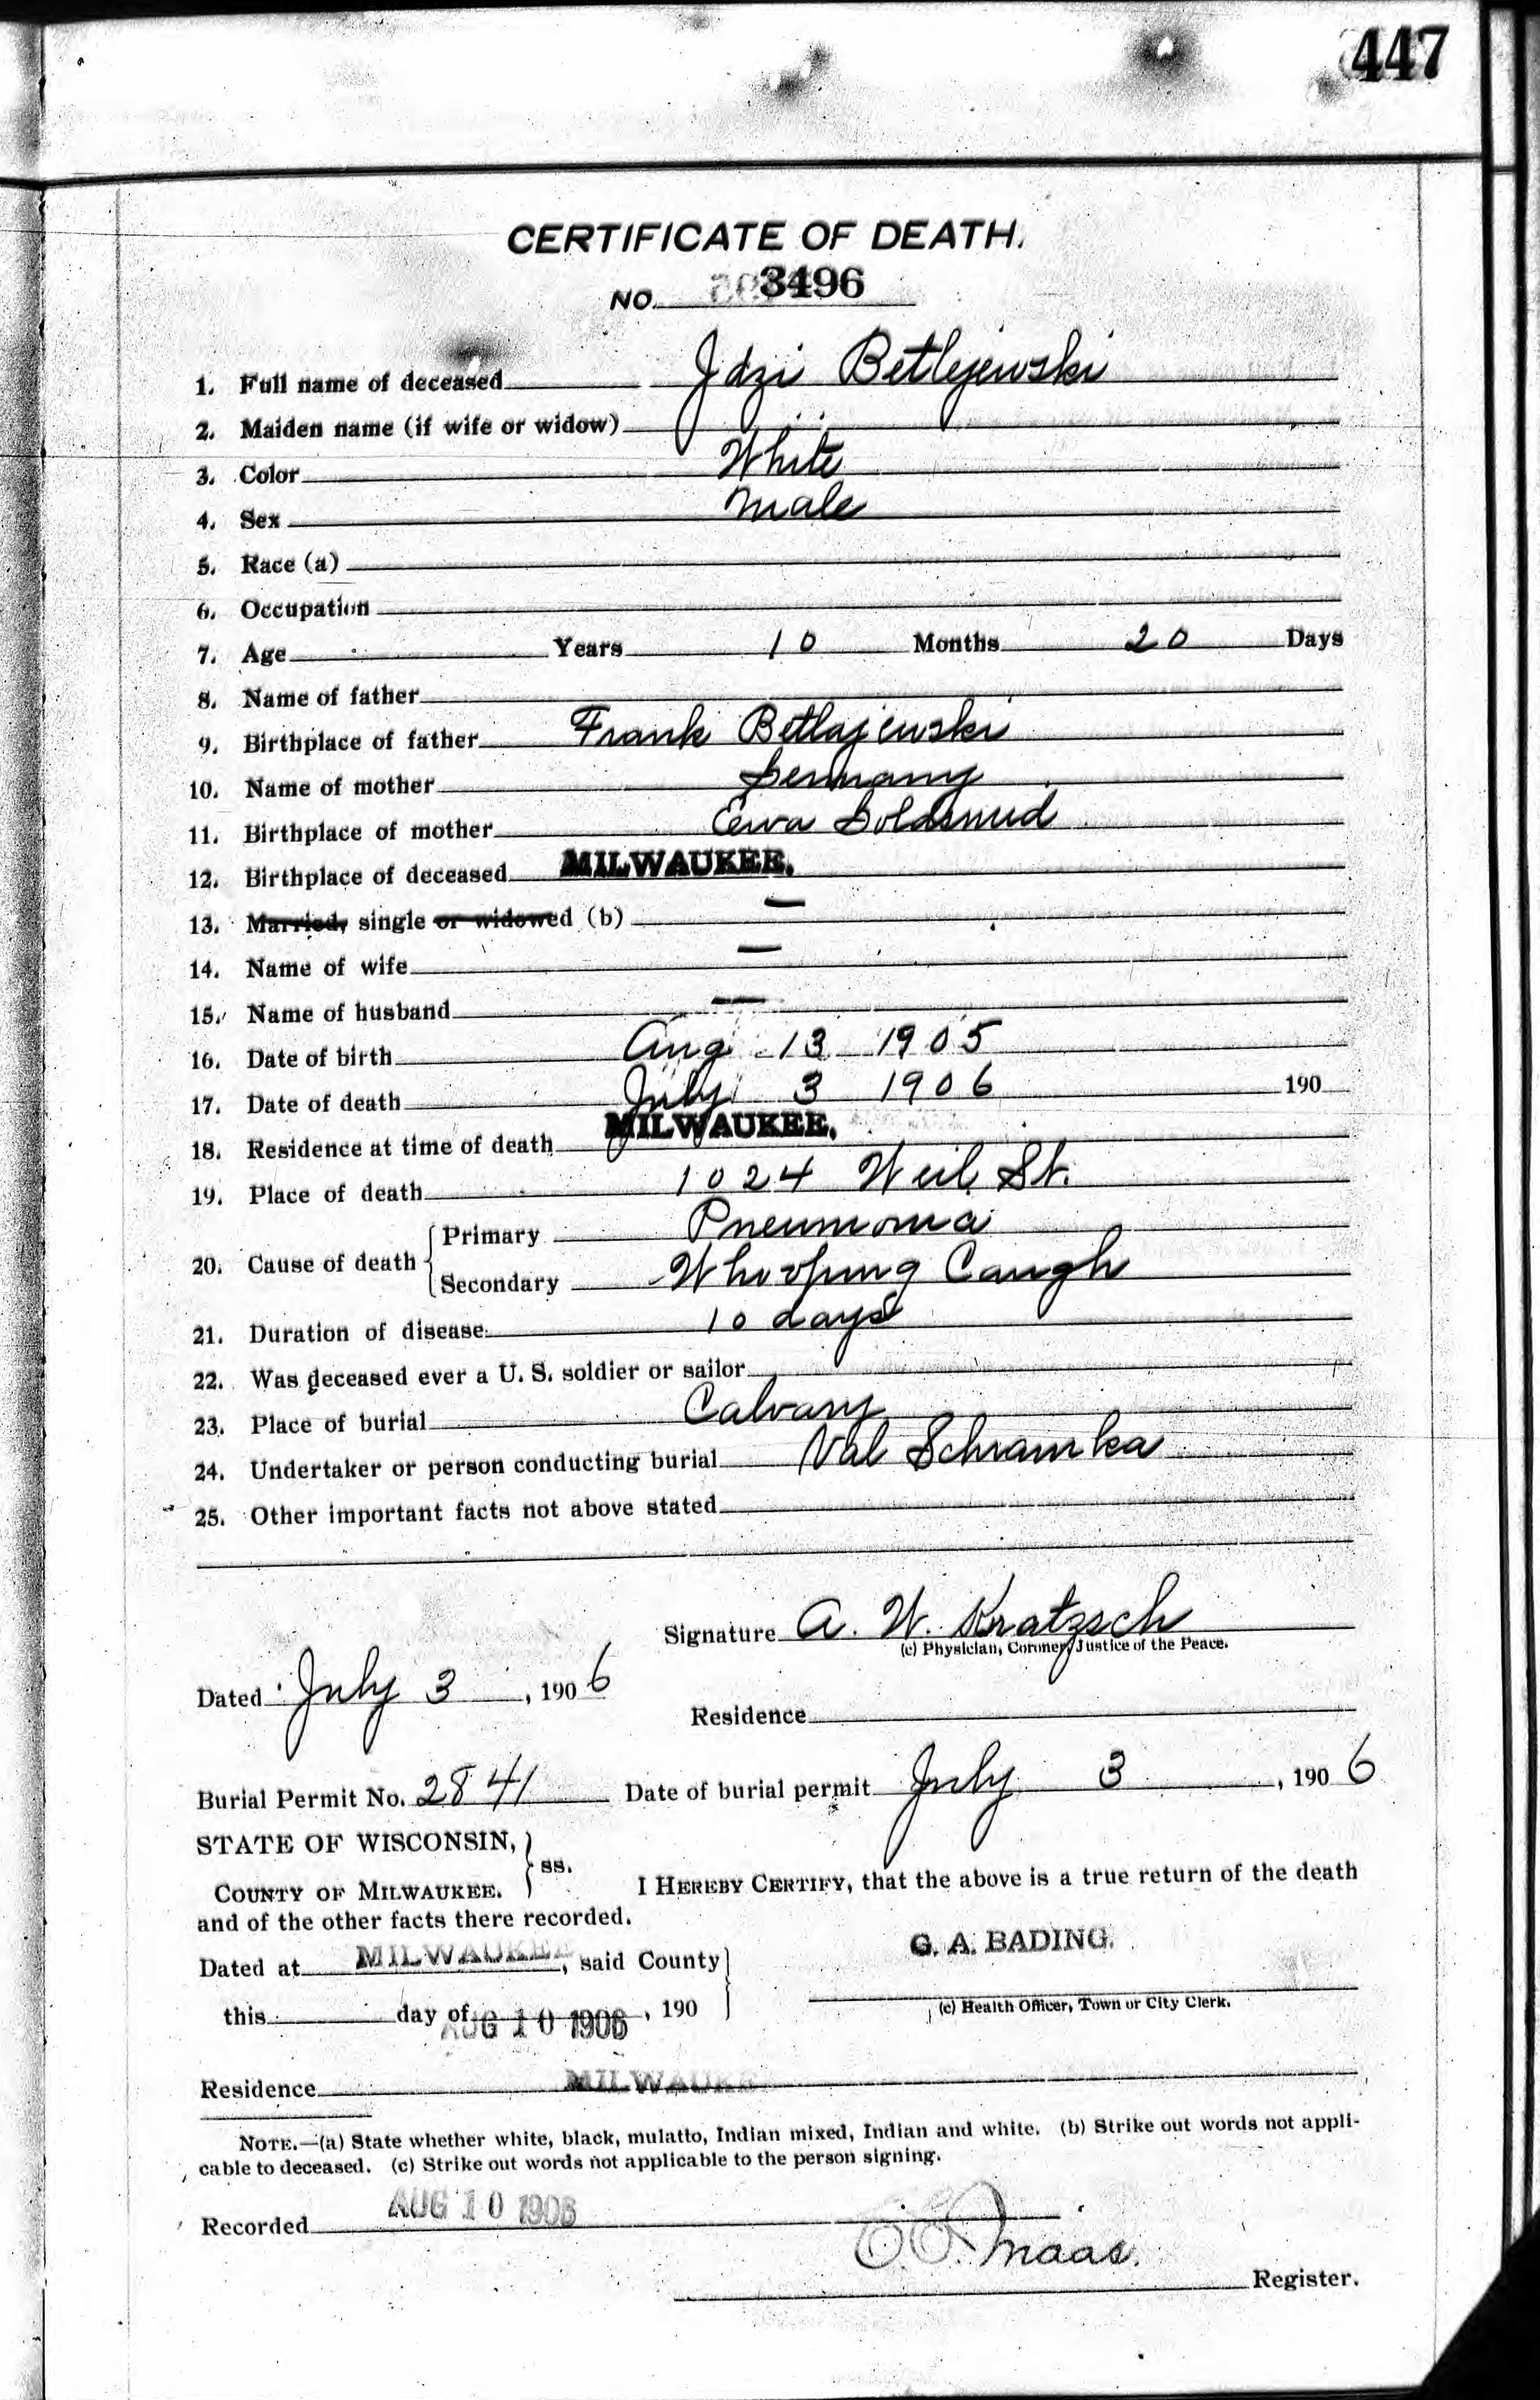 447
CERTIFICATE OF DEATH.
NO. 3496
1. Full name of deceased Idzi Betlejewski
2. Maiden name (if wife or widow)
3. Color White
4. Sex Male
5. Race (a)
6. Occupation
7. Age Years 10 Months 20 Days
8. Name of father
9. Birthplace of father Frank Betlajewski
10. Name of mother Germany
11. Birthplace of mother Ewa Goldsmid
12. Birthplace of deceased MILWAUKEE.
13. Married, single or widowed (b) —
14. Name of wife —
15. Name of husband —
16. Date of birth Aug 13 1905
17. Date of death July 3 1906 190
18. Residence at time of death MILWAUKEE.
19. Place of death 1024 Weil St.
20. Cause of death { Primary Pneumonia
Secondary Whooping Caugh
21. Duration of disease 10 days
22. Was deceased ever a U. S. soldier or sailor
23. Place of burial Calvary
24. Undertaker or person conducting burial Val Schramka
25. Other important facts not above stated
Signature A. W. Kratzsch
(c) Physician, Coroner, Justice of the Peace.
Dated July 3, 1906
Residence
Burial Permit No. 2841 Date of burial permit July 3, 1906
STATE OF WISCONSIN, } ss.
COUNTY OF MILWAUKEE.
I HEREBY CERTIFY, that the above is a true return of the death
and of the other facts there recorded.
G. A. BADING.
Dated at MILWAUKEE, said County
(c) Health Officer, Town or City Clerk.
this day of AUG 10 1906, 190
Residence MILWAUKEE
NOTE.—(a) State whether white, black, mulatto, Indian mixed, Indian and white. (b) Strike out words not appli-
cable to deceased. (c) Strike out words not applicable to the person signing.
Recorded AUG 10 1906
Maas.
Register.